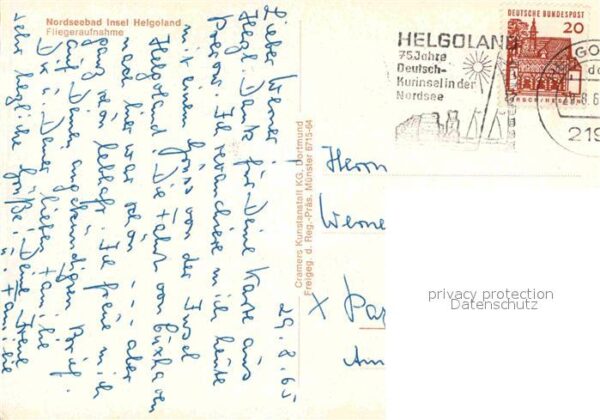 Nordseebad Insel Helgoland
Fliegeraufnahme
Lieber Werner!
Herzl. Dank für Deine Karte aus
Prerow. Ich revanchiere mich heute
mit einem Gruss von der Insel
Helgoland. Die Fahrt von Cuxhaven
nach hier war schön ... aber
ganz schön lebhaft. Ich freue mich
auf Deinen angekündigten Brief.
Dir u. Deiner lieben Familie
sehr herzliche Grüße! Deine Irene
u. Familie
29.8.65
Cramers Kunstanstalt KG, Dortmund
Freigeg. d. Reg.-Präs. Münster 6715-64
HELGOLAND
75 Jahre
Deutsch-
Kurinsel in der
Nordsee
DEUTSCHE BUNDESPOST
20
LORSCH/HESSEN
219
Herrn
Werne
X
Am
privacy protection
Datenschutz